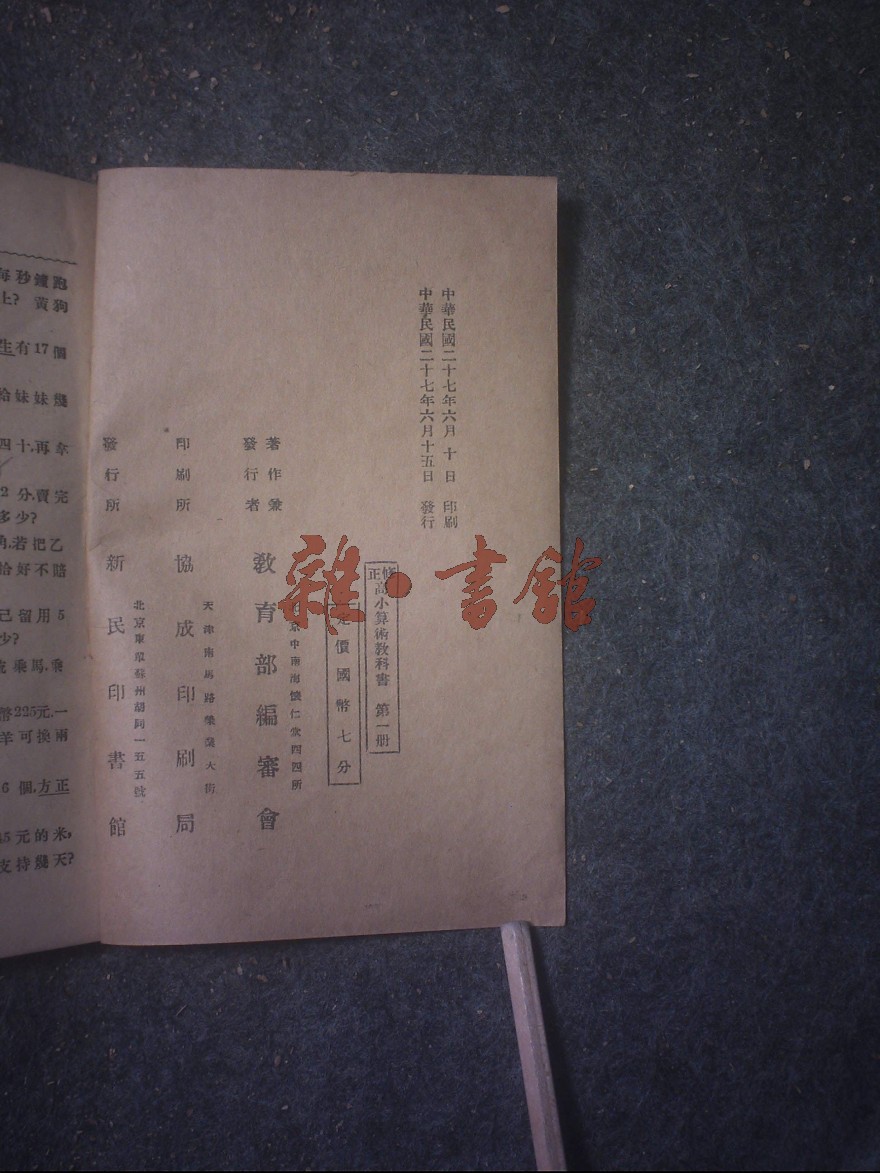 中華民國二十七年六月十日 印刷
中華民國二十七年六月十五日 發行
修正高小算術教科書 第一册
定價國幣七分
著作兼發行者 教育部編審會
京中南海懷仁堂四四所
印刷所 協成印刷局
天津南馬路榮業大街
發行所 新民印書館
北京東單蘇州胡同一五五號
雜·書館
每秒鐘跑
上? 黃狗
生有17個
給妹妹幾
四十,再拿
2分,賣完
多少?
角,若把乙
恰好不賠
己留用5
少?
乘馬,乘
幣225元,一
羊可換兩
6個,方正
45元的米,
支持幾天?